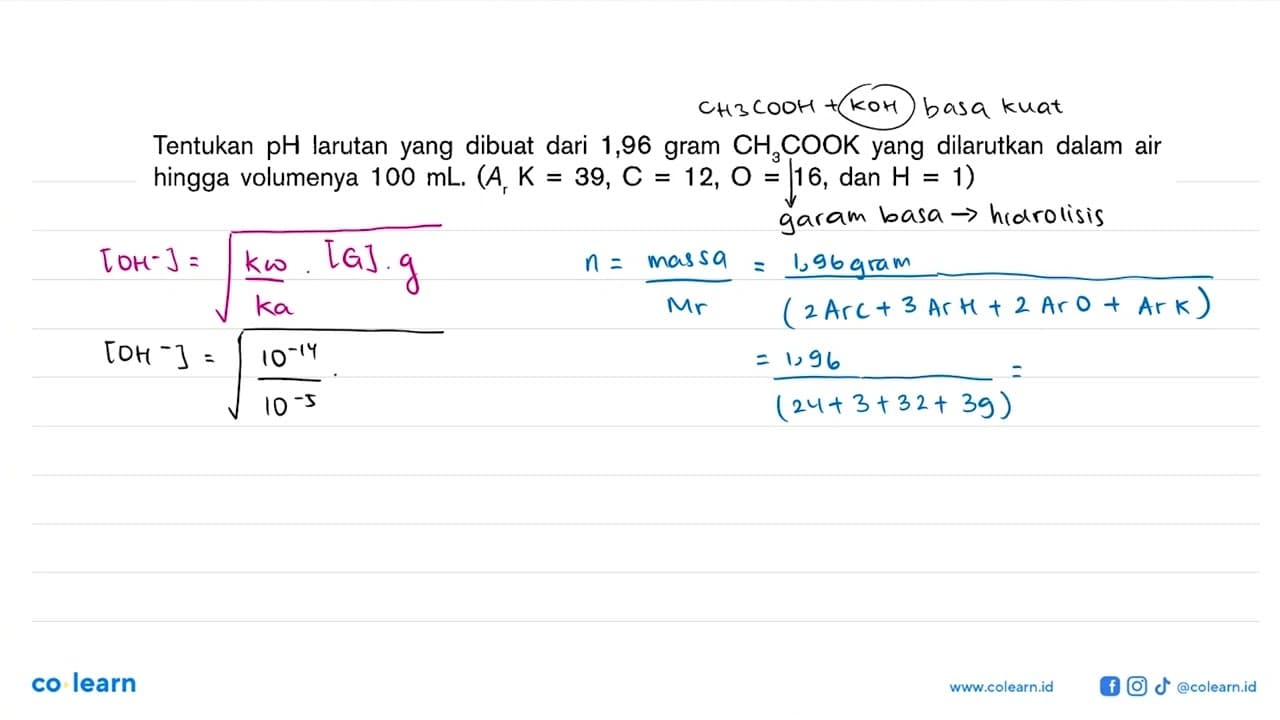 CH3COOH + KOH basa kuat
Tentukan pH larutan yang dibuat dari 1,96 gram CH₃COOK yang dilarutkan dalam air
hingga volumenya 100 mL. (Aᵣ K = 39, C = 12, O = 16, dan H = 1)
garam basa → hidrolisis
[OH⁻] = √(kw/ka . [G] . g)
n = massa/Mr = 1,96 gram/(2 Ar C + 3 Ar H + 2 Ar O + Ar K)
[OH⁻] = √(10⁻¹⁴/10⁻⁵ .
= 1,96/(24 + 3 + 32 + 39) =
co learn
www.colearn.id
@colearn.id